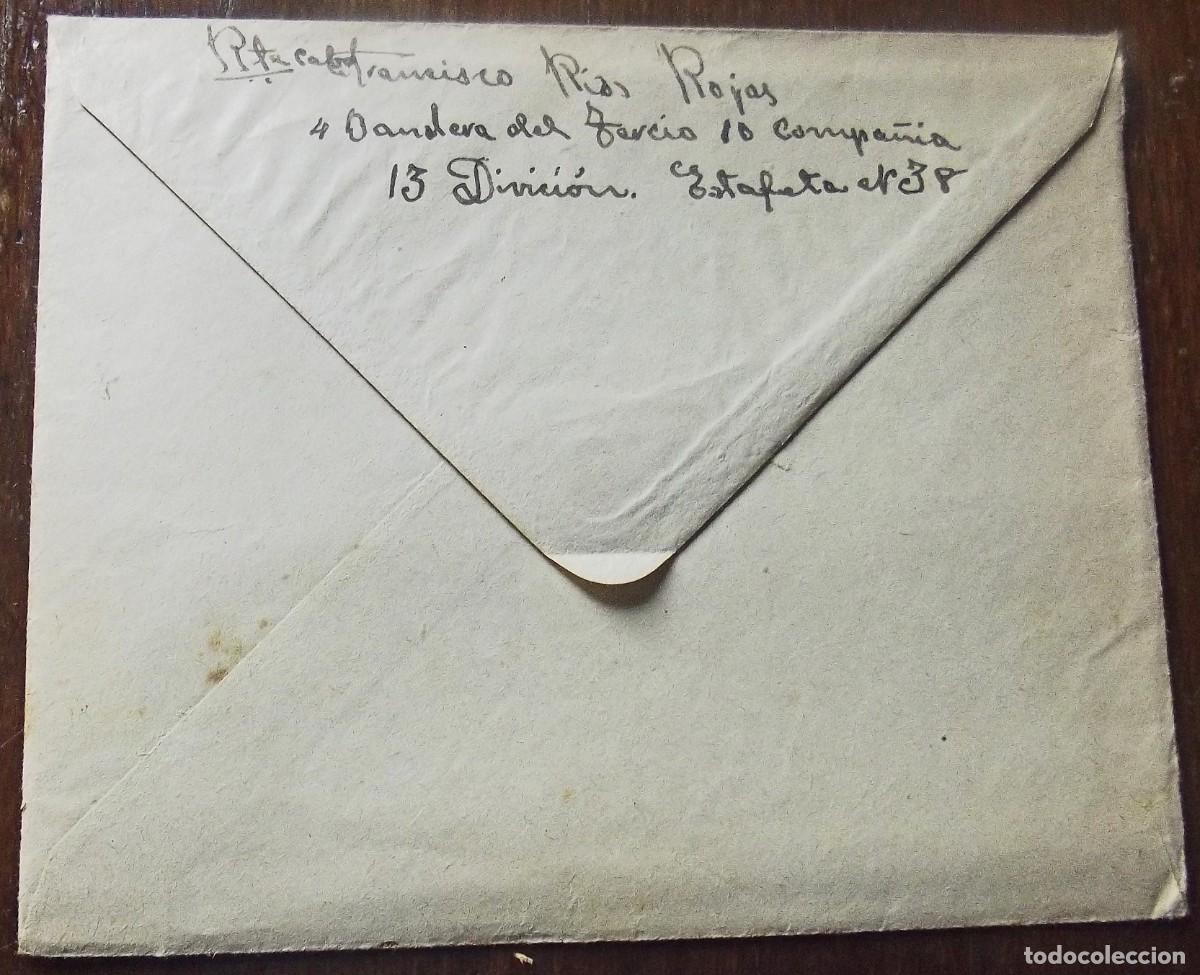 Rte cabo Francisco Rios Rojas
4 Bandera del Tercio 10 compañia
13 Divición. Estafeta N 38
todocoleccion